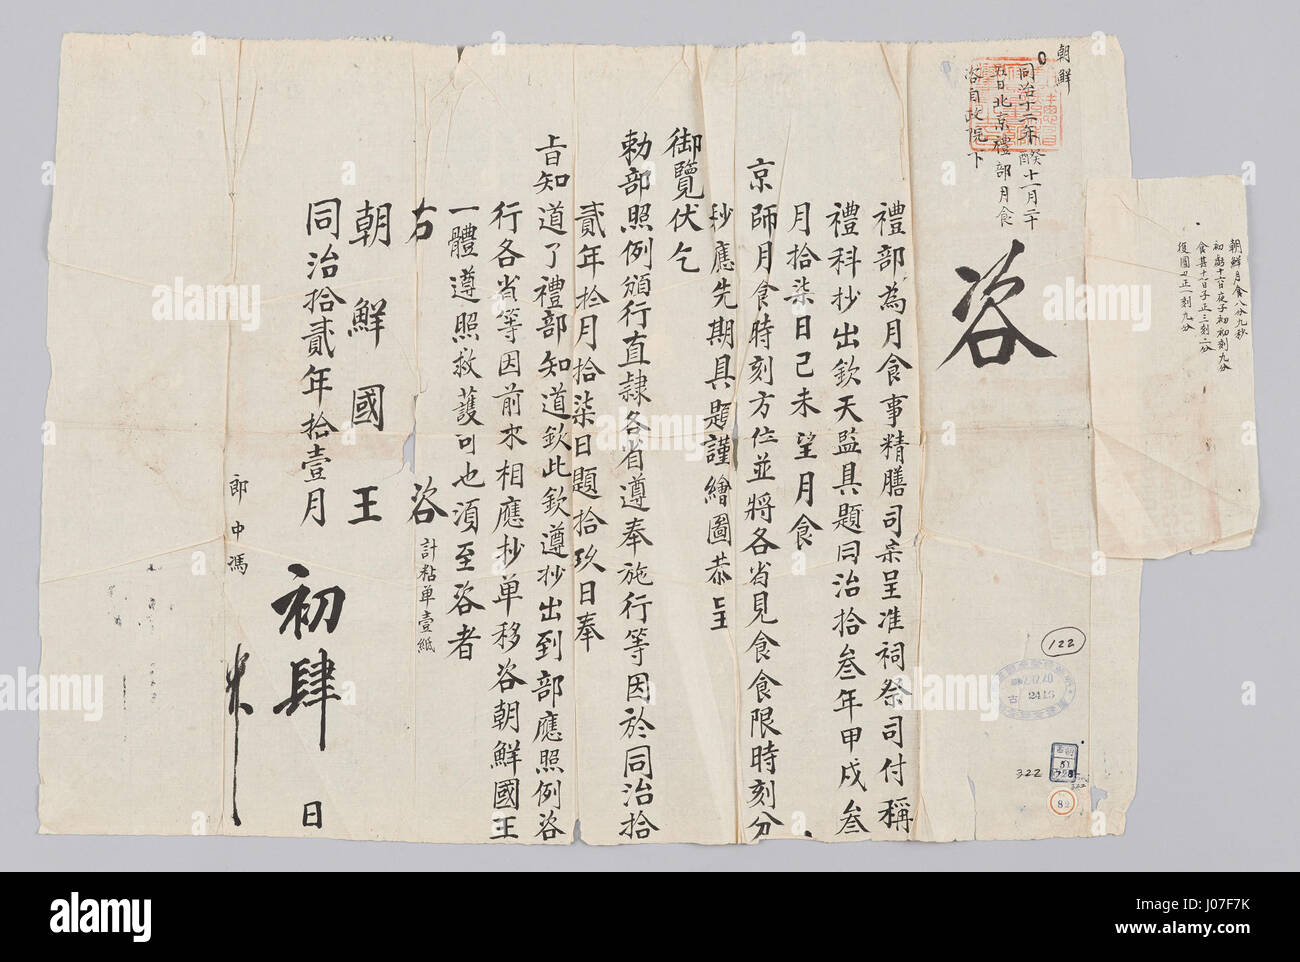 朝鮮月食八分九秒
初虧十六日夜子初初刻九分
食甚十七日子正三刻二分
復圓丑正一刻九分
朝鮮
同治十二年癸酉十一月二十
五日北京禮部月食
咨自政院下
咨
禮部為月食事精膳司案呈准祠祭司付稱
禮科抄出欽天監具題同治拾叁年甲戌叁
月拾柒日己未望月食
京師月食時刻方位並將各省見食食限時刻分
秒應先期具題謹繪圖恭呈
御覽伏乞
勅部照例頒行直隷各省遵奉施行等因於同治拾
貳年拾月拾柒日題拾玖日奉
旨知道了禮部知道欽此欽遵抄出到部應照例咨
行各省等因前來相應抄单移咨朝鮮國王
一體遵照救護可也須至咨者
右 咨 計粘单壹紙
朝鮮國王
同治拾貳年拾壹月 初肆 日
郎中馮
122
2416
322
322
82
alamy
alamy
Image ID: J07F7K
www.alamy.com